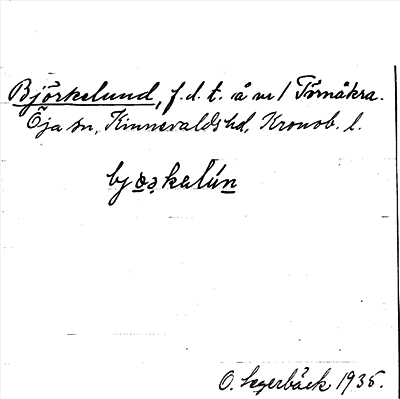 Björkelund, f.d. t. å vr / Törnåkra.
Öja sn, Kinnevalds hd, Kronob. l.
bjoskelún
O. Segerbäck 1935.